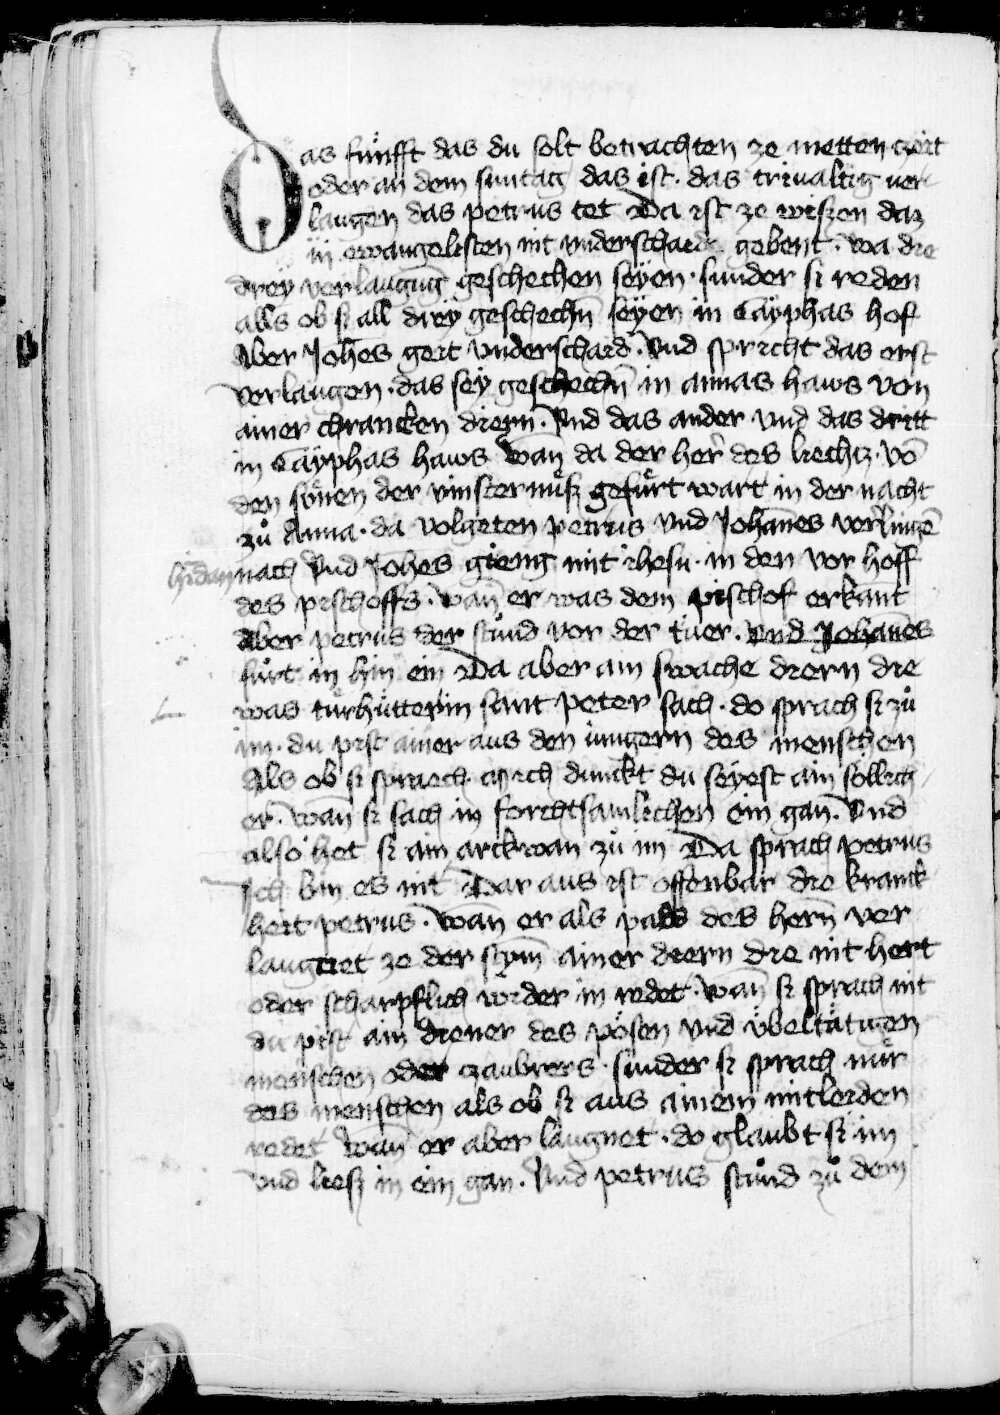 Das fünfft das du solt betrachten ze metten czeit
oder an dem suntag das ist · das trivaltig ver
laugen das petrus tet Da ist ze wissen daz
iij ewangelisten nit vnderschaid gebent · wa die
drey verlaugung geschechen seÿen · sunder si reden
alls ob si all dreÿ geschechn̄ seÿen in Cayphas hof
Aber Joh̄es geit vnderschaid · Vnd spricht das erst
verlaugen · das seÿ geschechn̄ in annas haws von
ainer chrancken diern · Vnd das ander vnd das dritt
in Cayphas haws Wan̄ da der her̄ des liechtz · vō
den sönen der vinsternüsz gefürt wart in der nacht
zů Anna · da volgeten petrus vnd Johānes
hindan nach Vnd Joh̄es gieng mit ihesu · in den vor hoff
des pischoffs · wan̄ er was dem pischof erkant
Aber petrus der stůnd vor der tüer · vnd Johānes
fůrt in hin ein Da aber ain swache diern die
was türhütterin sant peter sach · do sprach si zů
im · du pist ainer aus den iungern des menschen
Als ob si sprach mich dunckt du seÿest ain söllich
er · wan̄ si sach in forchtsamlichen ein gan · Vnd
also het si ain arckwan zů im Da sprach petrus
Jch bin es nit Dar aus ist offenbar die kranck
heit petrus · wan̄ er als pald des hern̄ ver
laugnet ze der stym̄ ainer diern die nit hert
oder scharpflich wider in redet · wan̄ si sprach nit
du pist ain diener des pösen vnd übeltätigen
menschen oder czaubrers · sunder si sprach nür
des menschen als ob si aus ainem mitleiden
redet wan̄ er aber laugnet · do glaubt si im
vnd liesz in ein gan · Vnd petrus stůnd zů dem